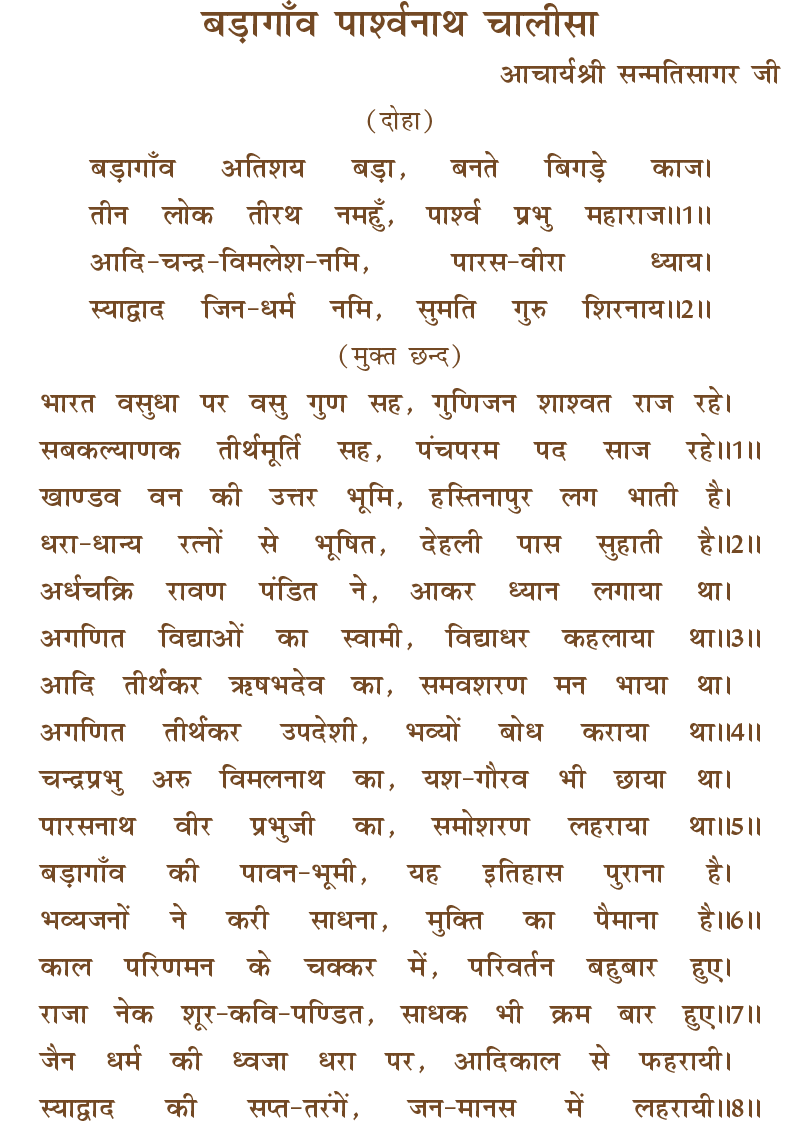 बड़ागाँव पार्श्वनाथ चालीसा
आचार्यश्री सन्मतिसागर जी
(दोहा)
बड़ागाँव अतिशय बड़ा, बनते बिगड़े काज।
तीन लोक तीरथ नमहुँ, पार्श्व प्रभु महाराज॥1॥
आदि-चन्द्र-विमलेश-नमि, पारस-वीरा ध्याय।
स्याद्वाद जिन-धर्म नमि, सुमति गुरु शिरनाय॥2॥
(मुक्त छन्द)
भारत वसुधा पर वसु गुण सह, गुणिजन शाश्वत राज रहे।
सबकल्याणक तीर्थमूर्ति सह, पंचपरम पद साज रहे॥1॥
खाण्डव वन की उत्तर भूमि, हस्तिनापुर लग भाती है।
धरा-धान्य रत्नों से भूषित, देहली पास सुहाती है॥2॥
अर्धचक्रि रावण पंडित ने, आकर ध्यान लगाया था।
अगणित विद्याओं का स्वामी, विद्याधर कहलाया था॥3॥
आदि तीर्थंकर ऋषभदेव का, समवशरण मन भाया था।
अगणित तीर्थंकर उपदेशी, भव्यों बोध कराया था॥4॥
चन्द्रप्रभु अरु विमलनाथ का, यश-गौरव भी छाया था।
पारसनाथ वीर प्रभुजी का, समोशरण लहराया था॥5॥
बड़ागाँव की पावन-भूमी, यह इतिहास पुराना है।
भव्यजनों ने करी साधना, मुक्ति का पैमाना है॥6॥
काल परिणमन के चक्कर में, परिवर्तन बहुबार हुए।
राजा नेक शूर-कवि-पण्डित, साधक भी क्रम बार हुए॥7॥
जैन धर्म की ध्वजा धरा पर, आदिकाल से फहरायी।
स्याद्वाद की सप्त-तरंगें, जन-मानस में लहरायी॥8॥